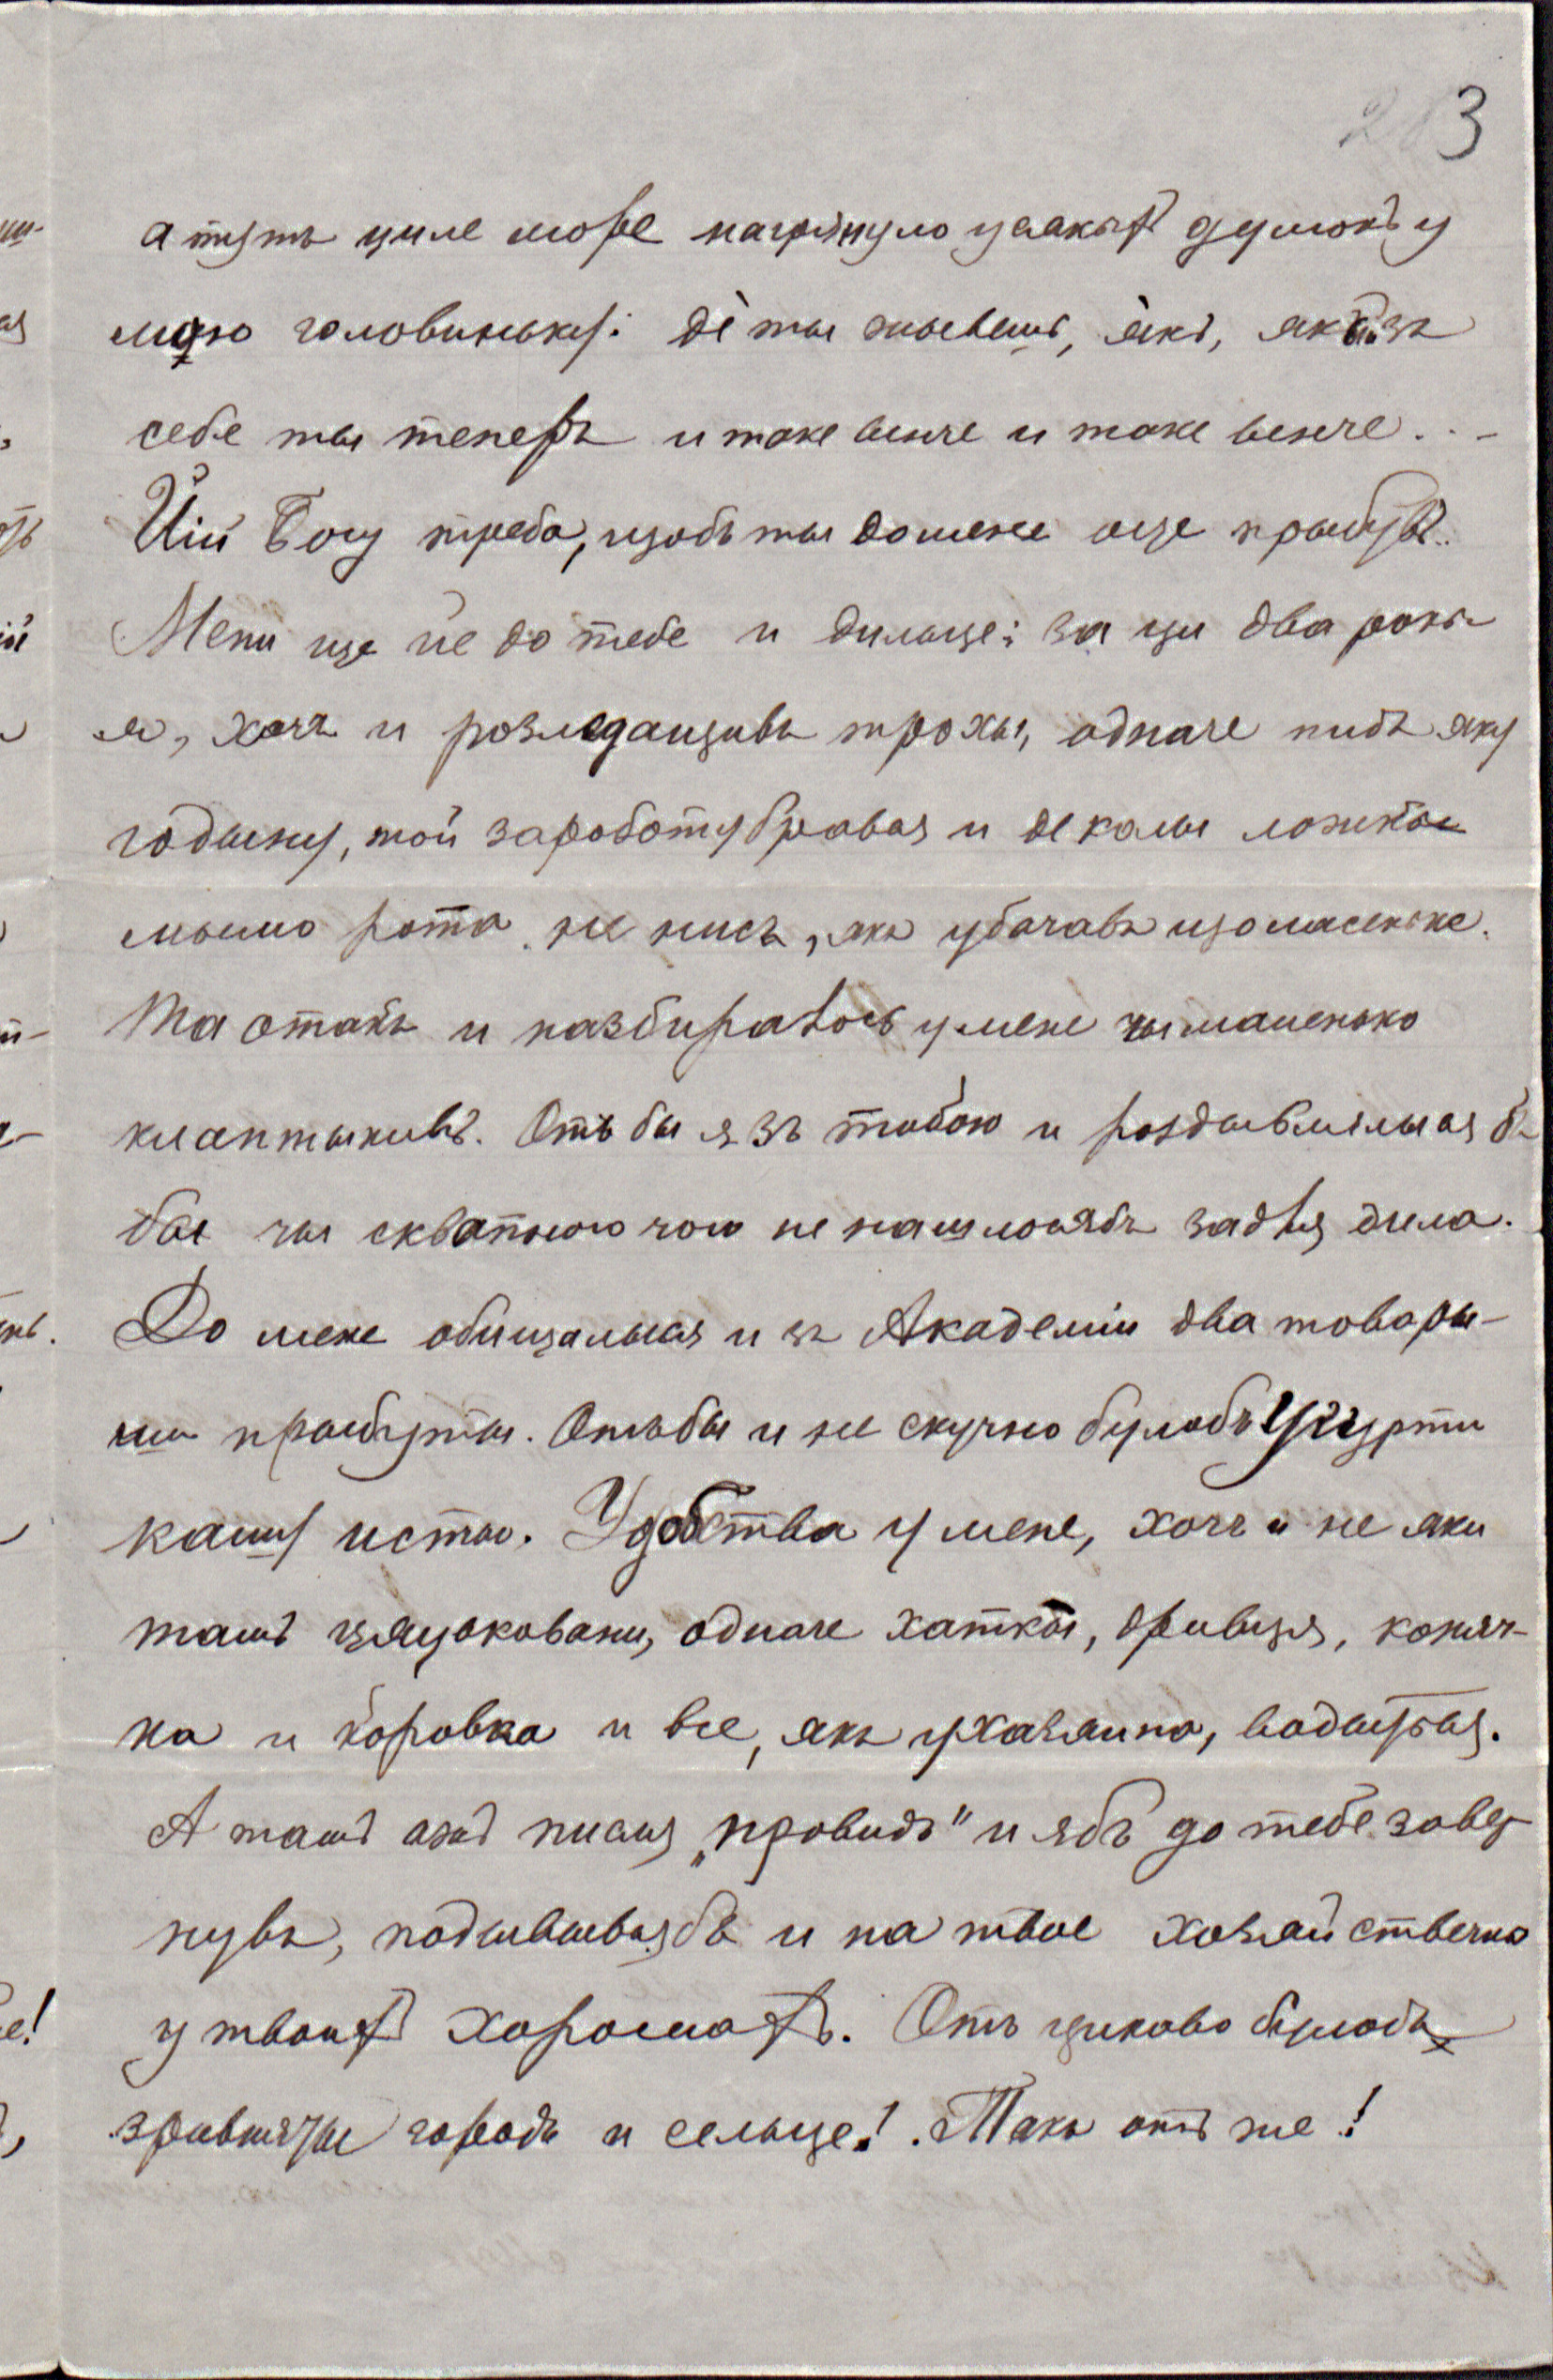 3
а тутъ циле море нагрянуло усякыхъ думокъ у
мою головыньку: дѐ ты жывешъ, я̀къ, якый зъ
себе ты теперъ и таке венче и таке венче...
Йій Богу треба, щобъ ты до мене още прыбувъ..
Мени ще йе до тебе и дильце: за ци два рокы
я, хочъ и розледащивъ трохы, одначе пидъ яку
годыну, той за роботу бравая и де колы ложкы
мымо рота не нисъ, якъ убачавъ що масеньке.
Та отакъ и назбиралось у мене чымаленько
клаптыкивъ. Отъ бы я зъ тобою и роздывлялыся б
бы чы скватною чого не нашлосябъ задля дила.
До мене обищалыся и зъ Академіи два товары-
ши прыбуты. Отъ бы и не скучно булобъ у гурти
кашу исты. Удобства у мене, хочъ и не яки
тамъ цяцьковани, одначе хаткы, дривця, коняч-
ка и коровка и все, якъ у хазяина, водытця.
А тамъ ажъ писля „провидъ" и ябъ до тебе завер
нувъ, подывывсябъ и на твое хозяйствечко
у твоихъ хоромахъ. Отъ циково булобъ
зривняты городъ и сельце! Такъ отъ же!